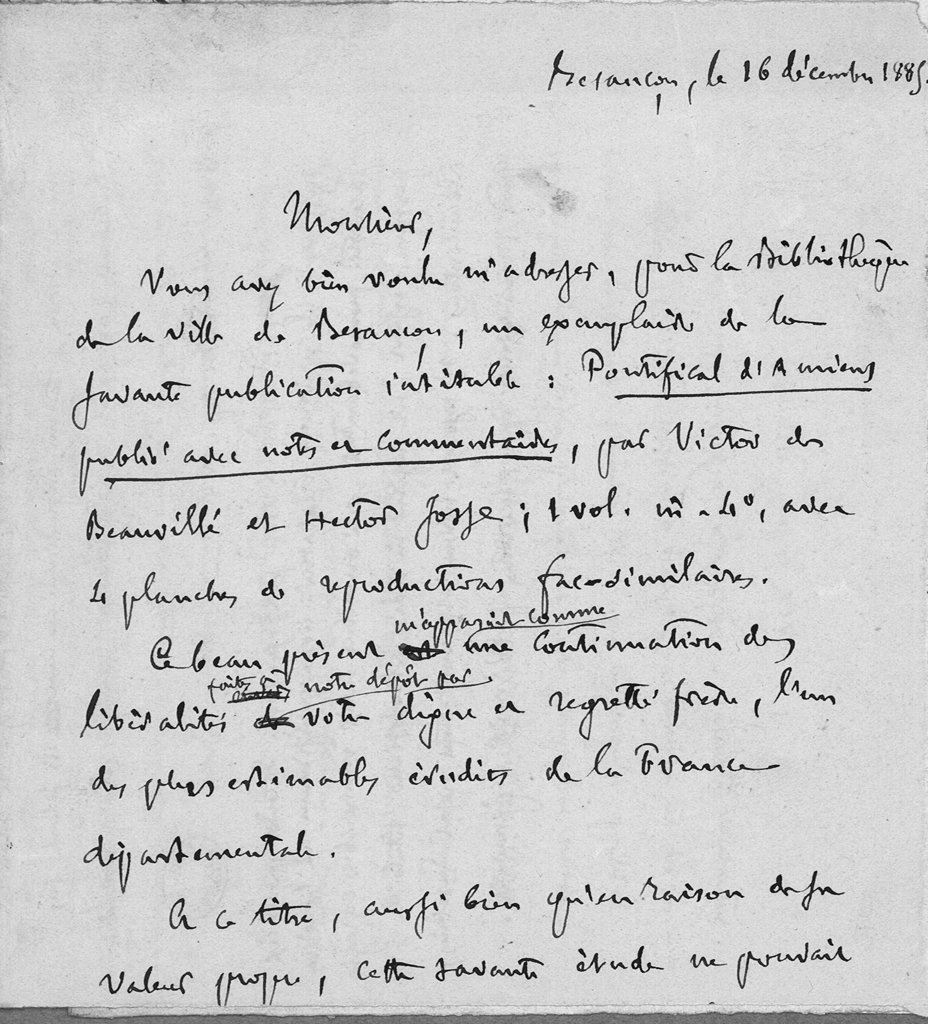 Besançon, le 16 décembre 1885.
Monsieur,
Vous avez bien voulu m'adresser, pour la Bibliothèque
de la ville de Besançon, un exemplaire de la
savante publication intitulée : Pontifical d'Amiens
publié avec notes et commentaires, par Victor de
Beauvillé et Hector Josse ; 1 vol. in-4°, avec
4 planches de reproductions fac-similaires.
m'apparait comme
Ce beau présent une continuation des
faites à notre dépôt par
libéralités votre digne et regretté frère, l'un
des plus estimables érudits de la France
départementale.
A ce titre, aussi bien qu'en raison de sa
valeur propre, cette savante étude ne pouvait